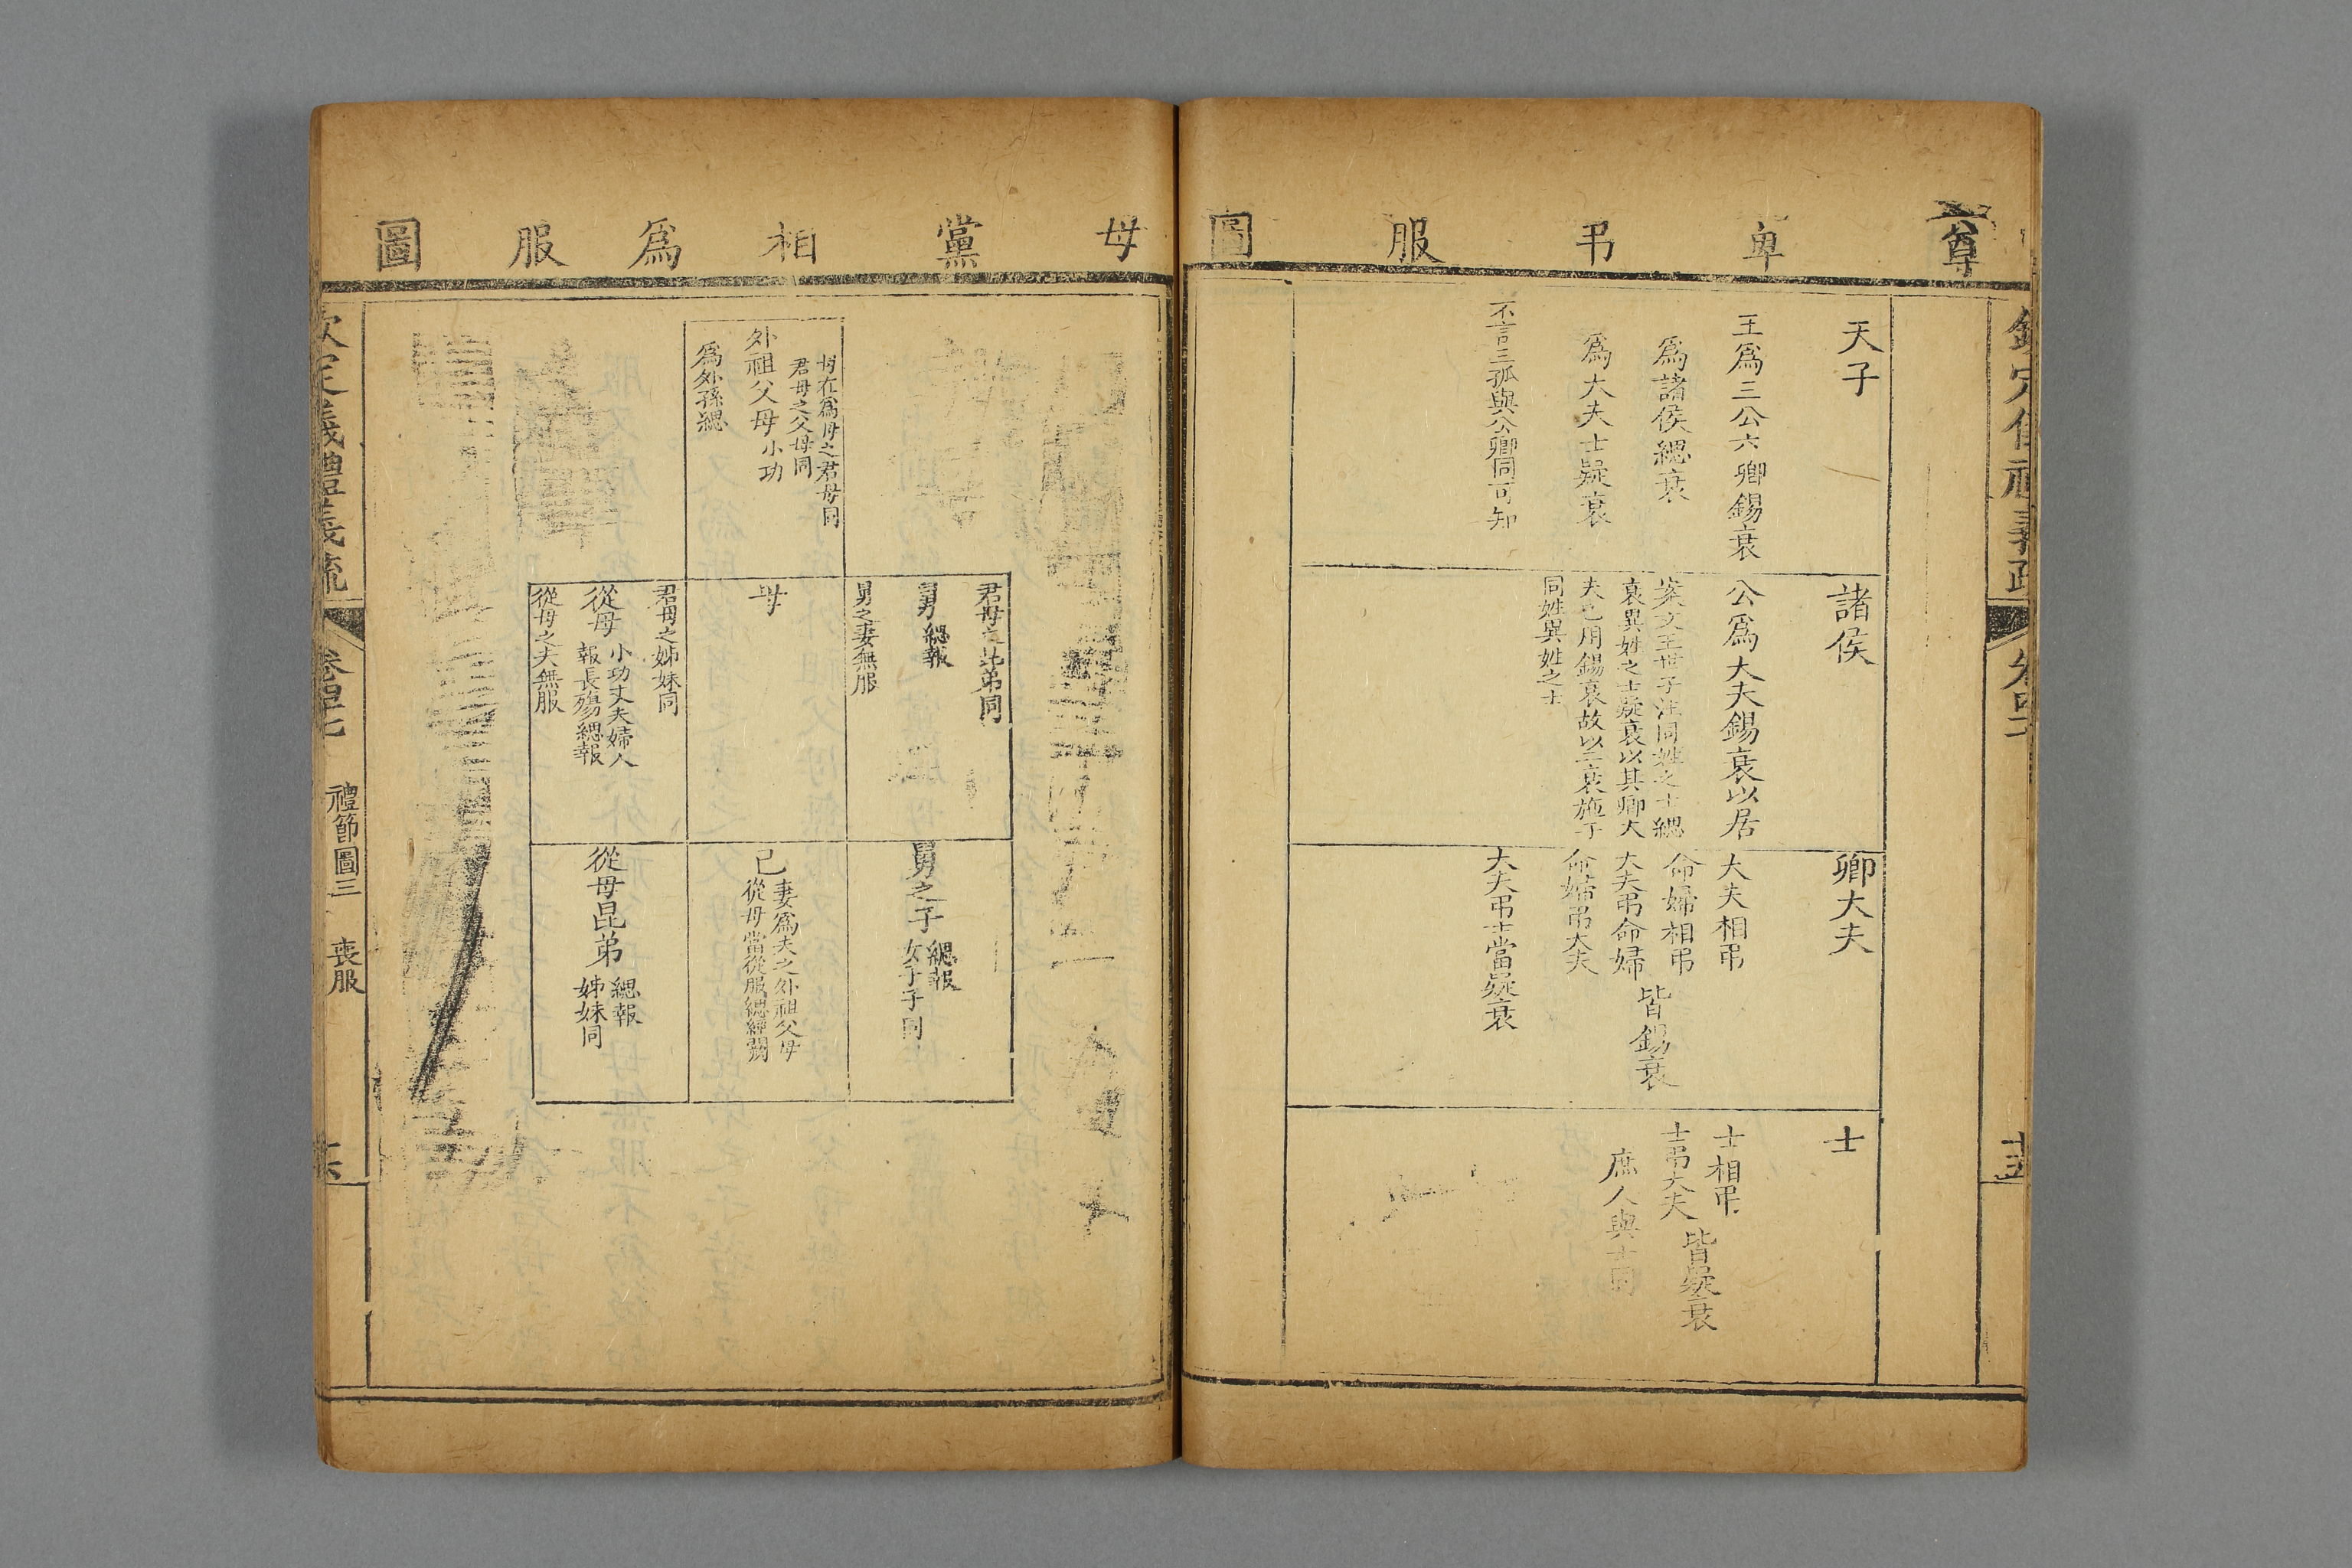 尊卑弔服圖
天子
王爲三公六卿錫衰
爲諸侯緦衰
爲大夫士疑衰
不言三孤與公卿同可知
諸侯
公爲大夫錫衰以居
案文王世子注同姓之士緦
衰異姓之士疑衰以其卿大
夫已用錫衰故以二衰施于
同姓異姓之士
卿大夫
大夫相弔
命婦相弔
大夫弔命婦
命婦弔大夫
皆錫衰
大夫弔士當疑衰
士
士相弔
士弔大夫
皆疑衰
庶人與士同
母黨相爲服圖
母在爲母之君母同
君母之父母同
外祖父母小功
爲外孫緦
君母之昆弟同
舅緦報
舅之妻無服
母
君母之姊妹同
從母小功丈夫婦人
報長殤緦報
從母之夫無服
舅之子緦報
女子子同
己妻爲夫之外祖父母
從母當從服緦經闕
從母昆弟緦報
姊妹同
欽定儀禮義疏
卷四十七
禮節圖三
喪服